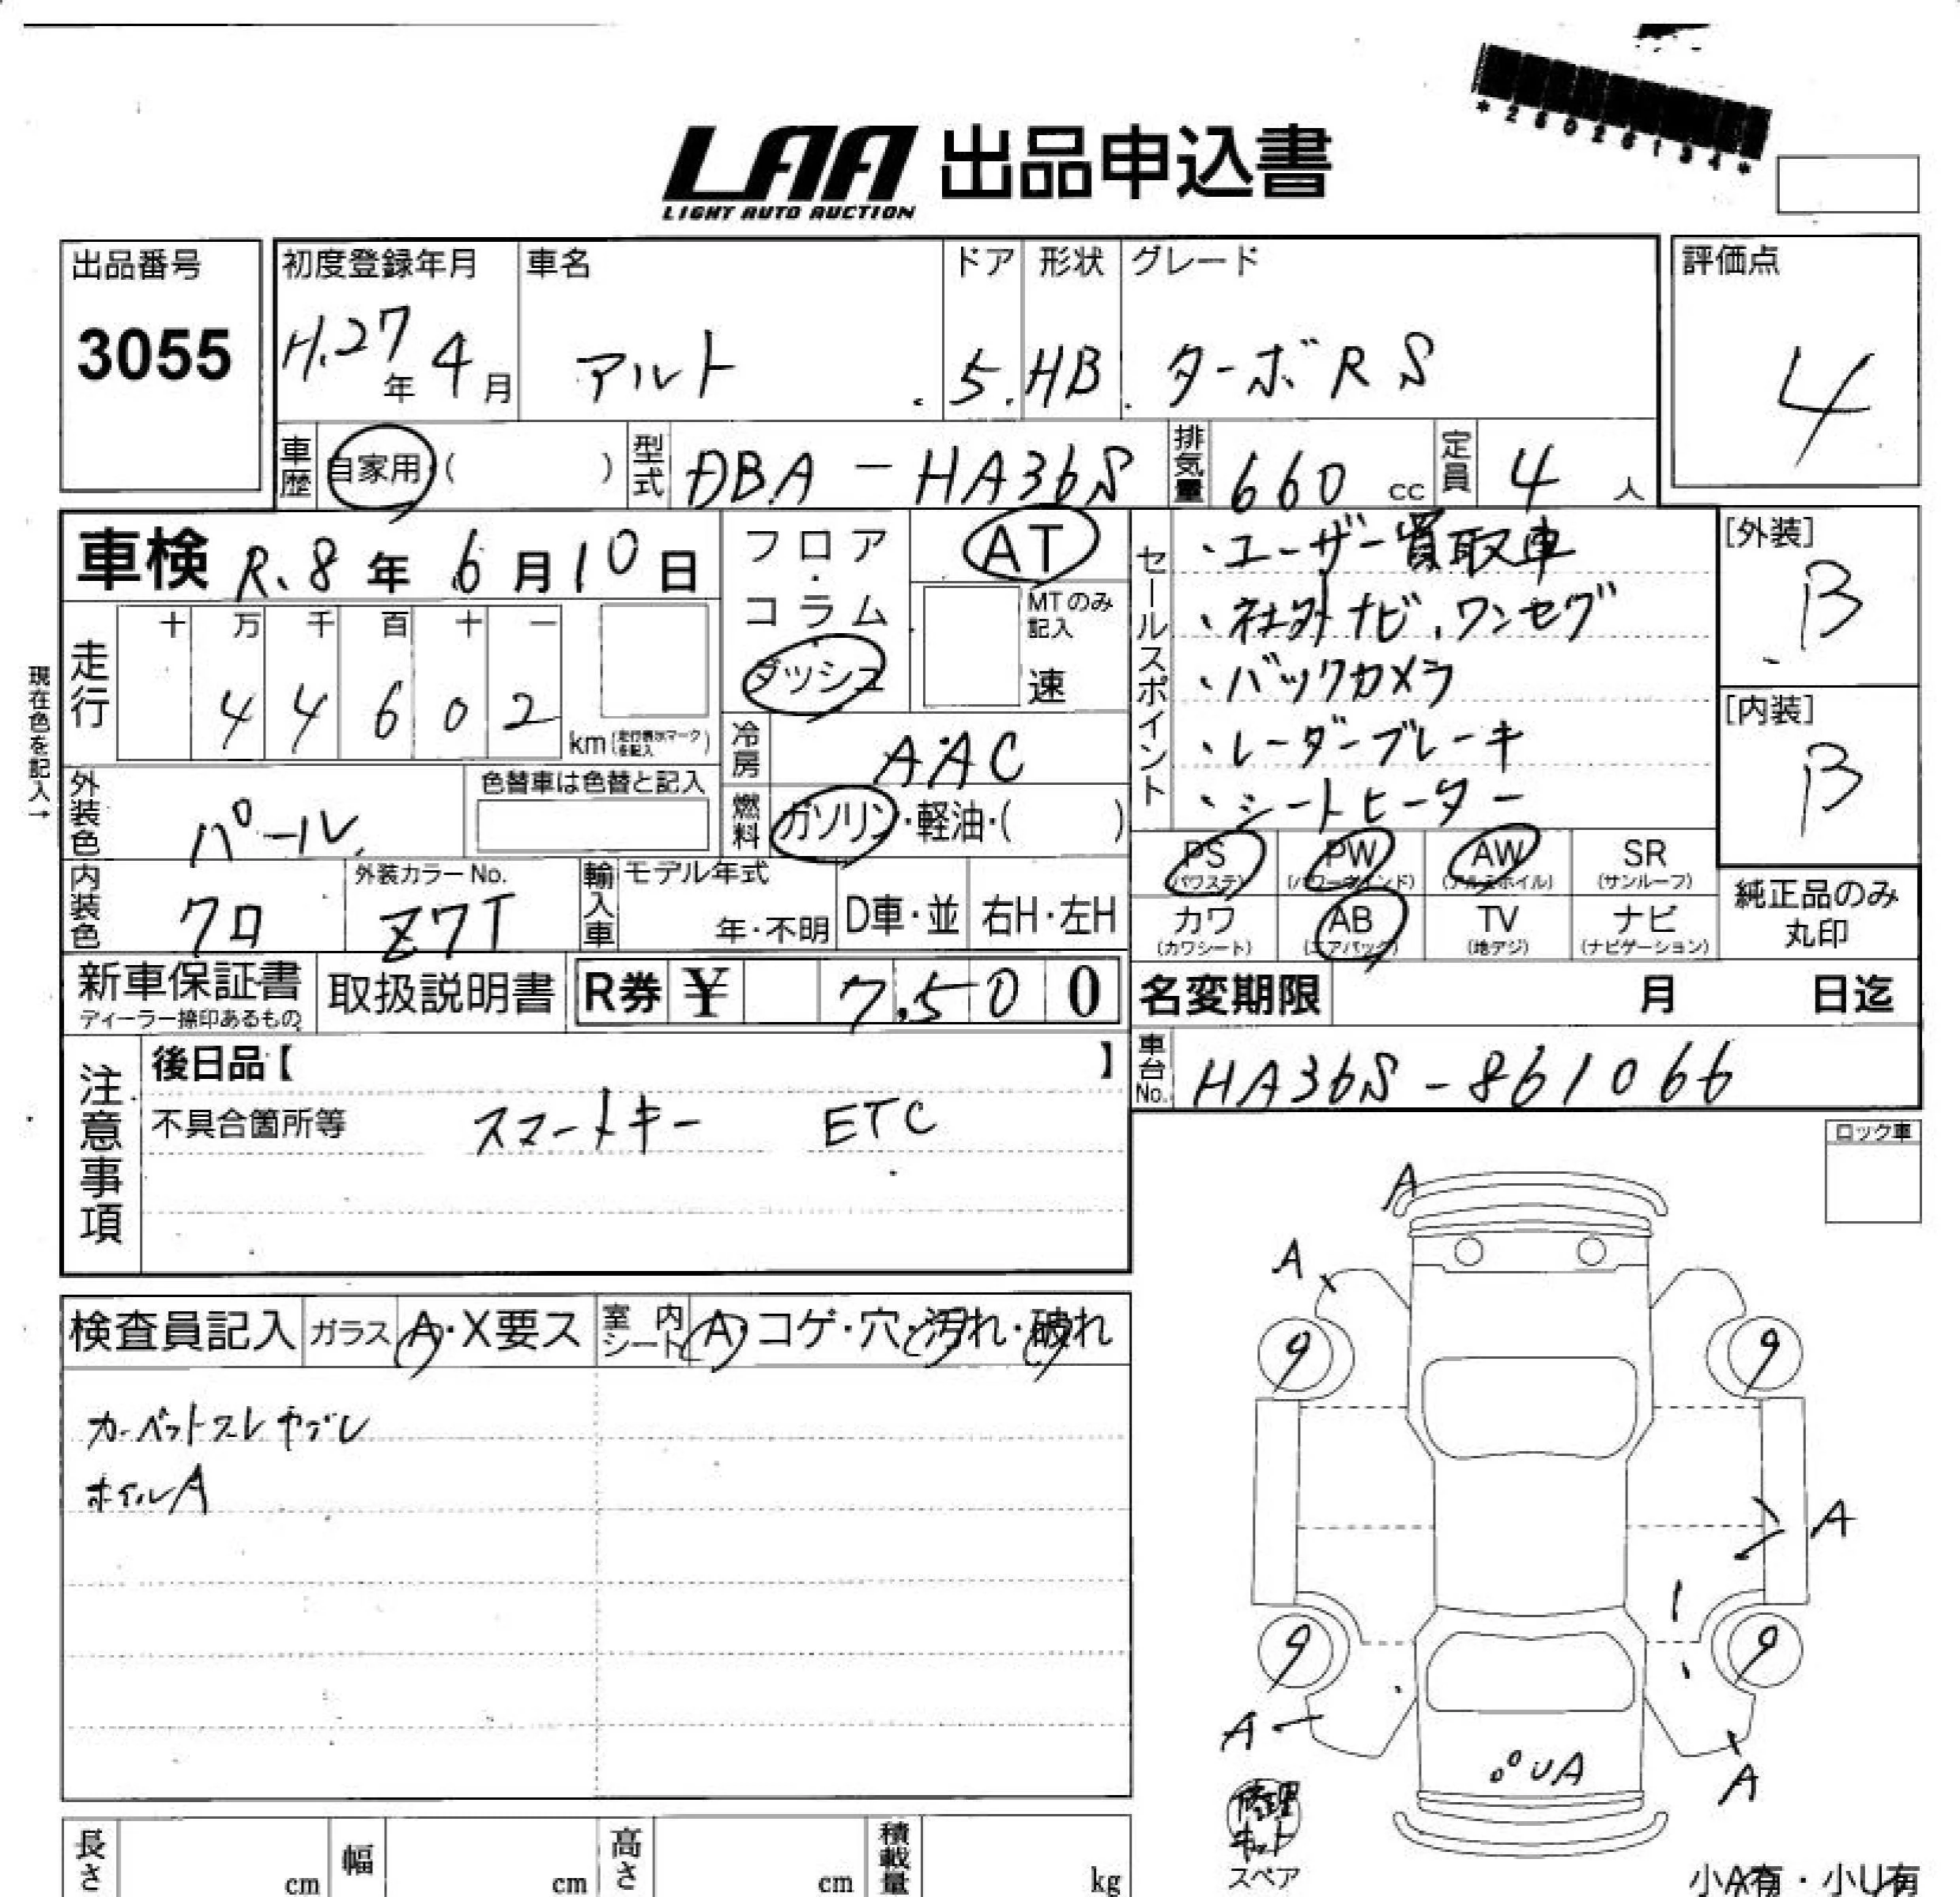 *28026134*
LAA 出品申込書
LIGHT AUTO AUCTION
出品番号 初度登録年月 車名 ドア 形状 グレード 評価点
3055 H.27年 4月 アルト 5 HB ターボRS 4
車歴 自家用・( ) 型式 DBA-HA36S 排気量 660 cc 定員 4 人
車検 R.8年 6月10日
フロア・コラム ダッシュ
AT
MTのみ記入
速
セールスポイント
・ユーザー買取車
・社外ナビ、ワンセグ
・バックカメラ
・レーダーブレーキ
・シートヒーター
[外装]
B
[内装]
B
現在色を記入→
走行 十 万 千 百 十 一
4 4 6 0 2 km(走行表示マークを記入)
冷房 AAC
燃料 ガソリン・軽油・( )
外装色 パール
色替車は色替と記入
PS (パワステ) PW (パワーウィンド) AW (アルミホイル) SR (サンルーフ)
カワ (カワシート) AB (エアバック) TV (地デジ) ナビ (ナビゲーション)
純正品のみ
丸印
内装色 クロ 外装カラーNo. Z7T
輸入車 モデル年式 年・不明 D車・並 右H・左H
新車保証書 取扱説明書 R券 ¥ 7,500
ディーラー捺印あるもの
名変期限 月 日迄
車台No. HA36S-861066
注意事項
後日品【 】
不具合箇所等 スマートキー ETC
ロック車
検査員記入 ガラス A・X要ス 室内シート A・コゲ・穴・汚れ・破れ
カーペットスレヤブレ
ホイルA
A
A
9 9
A
9 9
A
UA
A
修理
キット
スペア
小A有・小U有
長さ cm 幅 cm 高さ cm 積載量 kg